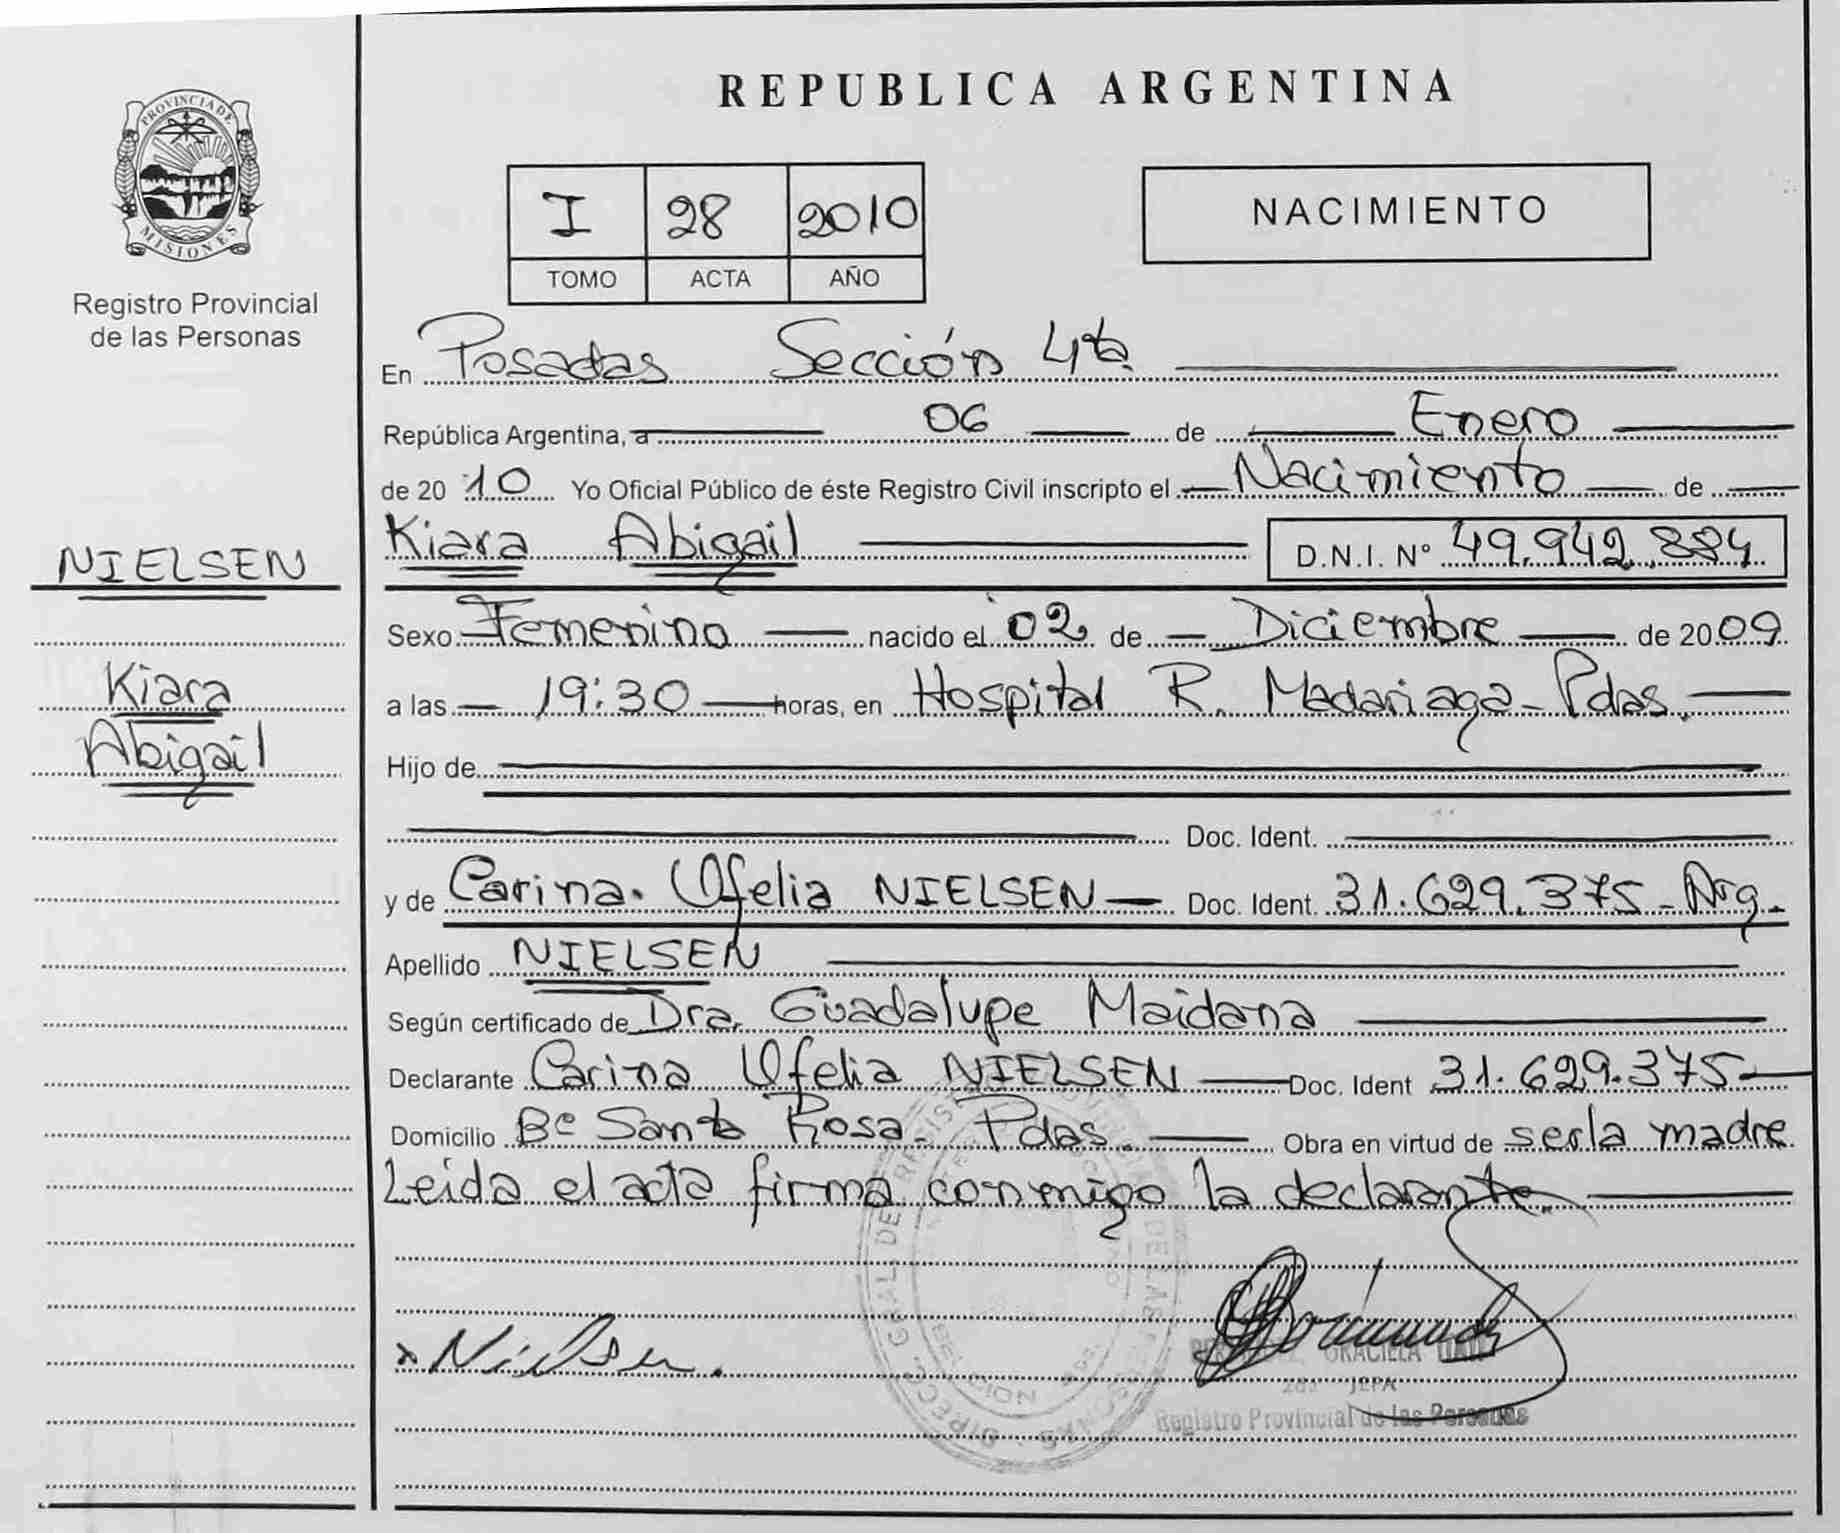 PROVINCIA DE
MISIONES
Registro Provincial
de las Personas
NIELSEN
Kiara
Abigail
REPUBLICA ARGENTINA
I 28 2010
TOMO ACTA AÑO
NACIMIENTO
En Posadas Sección 4ta.
República Argentina, a 06 de Enero
de 2010 Yo Oficial Público de éste Registro Civil inscripto el Nacimiento de
Kiara Abigail D.N.I. N° 49.942.884
Sexo Femenino nacido el 02 de Diciembre de 2009
a las 19:30 horas, en Hospital R. Madariaga - Pdas.
Hijo de
Doc. Ident.
y de Carina Ofelia NIELSEN Doc. Ident. 31.629.375 - Arg.
Apellido NIELSEN
Según certificado de Dra. Guadalupe Maidana
Declarante Carina Ofelia NIELSEN Doc. Ident 31.629.375
Domicilio Bº Santa Rosa - Pdas. Obra en virtud de ser la madre
Leida el acta firma conmigo la declarante.
x Nielsen.
GRACIELA
JEFA
Registro Provincial de las Personas